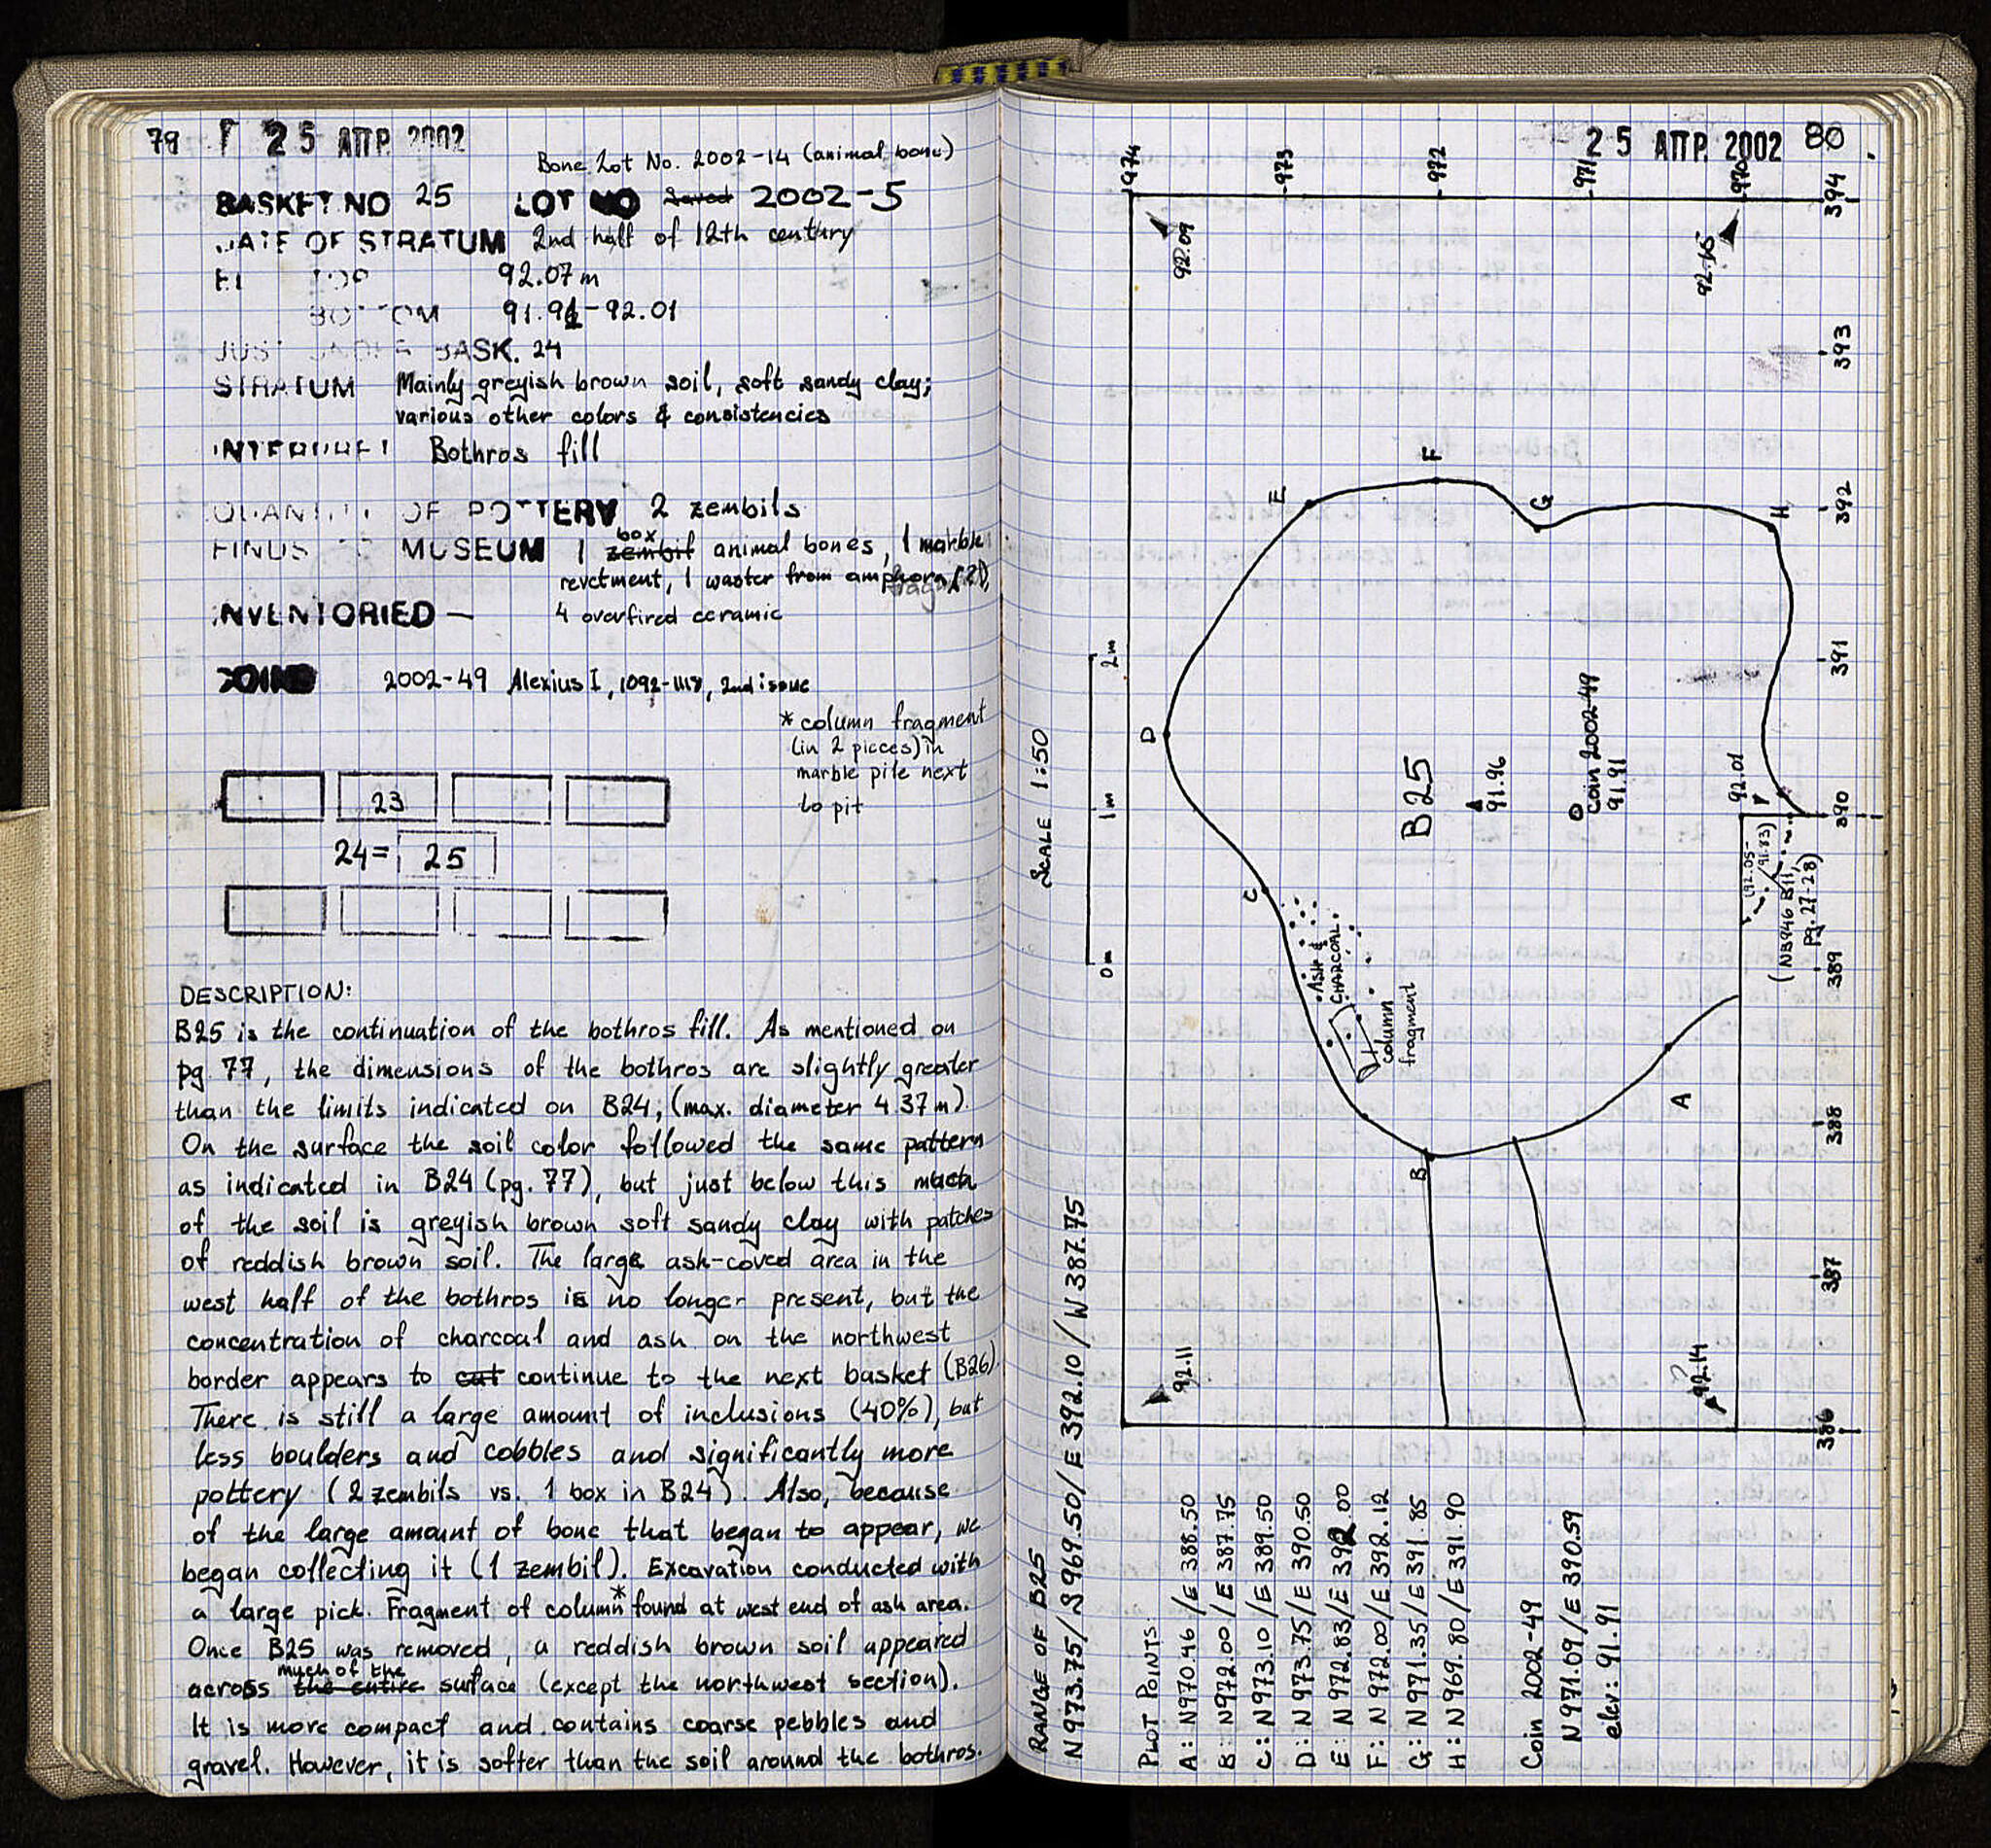 79 25 ΑΠΡ. 2002
Bone Lot No. 2002-14 (animal bone)
BASKET NO 25 LOT NO Saved 2002-5
DATE OF STRATUM 2nd half of 12th century
EL TOP 92.07m
BOTTOM 91.91-92.01
JUST UNDER BASK. 24
STRATUM Mainly greyish brown soil, soft sandy clay;
various other colors & consistencies
INTERPRET Bothros fill
QUANTITY OF POTTERY 2 zembils
box
FINDS TO MUSEUM 1 zembil animal bones, 1 marble
revetment, 1 waster from amphora (?),
INVENTORIED — 4 overfired ceramic
COINS 2002-49 Alexius I, 1092-1118, 2nd issue
* column fragment
(in 2 pieces) in
marble pile next
to pit
23
24= 25
DESCRIPTION:
B25 is the continuation of the bothros fill. As mentioned on
pg. 77, the dimensions of the bothros are slightly greater
than the limits indicated on B24, (max. diameter 4.37m).
On the surface the soil color followed the same pattern
as indicated in B24 (pg. 77), but just below this much
of the soil is greyish brown soft sandy clay with patches
of reddish brown soil. The large ash-coved area in the
west half of the bothros is no longer present, but the
concentration of charcoal and ash on the northwest
border appears to cut continue to the next basket (B26).
There is still a large amount of inclusions (40%), but
less boulders and cobbles and significantly more
pottery (2 zembils vs. 1 box in B24). Also, because
of the large amount of bone that began to appear, we
began collecting it (1 zembil). Excavation conducted with
a large pick. Fragment of column* found at west end of ash area.
Once B25 was removed, a reddish brown soil appeared
much of the
across the entire surface (except the northwest section).
It is more compact and contains coarse pebbles and
gravel. However, it is softer than the soil around the bothros.
25 ΑΠΡ. 2002 80
RANGE OF B25
N973.75/S969.50/E392.10/W387.75
SCALE 1:50
0m 1m 2m
974 973 972 971 970
394 393 392 391 390 389 388 387 386
92.09
92.15
92.11
92.14
A
B
C
D
E
F
G
H
B25
91.96
coin 2002-49
91.91
92.01
(92.05-
91.83)
(NB946 B11,
pg. 27-28)
ASH &
CHARCOAL
column
fragment
PLOT POINTS:
A: N970.46/E 388.50
B: N972.00/E 387.75
C: N973.10/E 389.50
D: N973.75/E 390.50
E: N972.83/E 392.00
F: N972.00/E 392.12
G: N971.35/E 391.85
H: N969.80/E 391.90
Coin 2002-49
N971.09/E 390.59
elev: 91.91